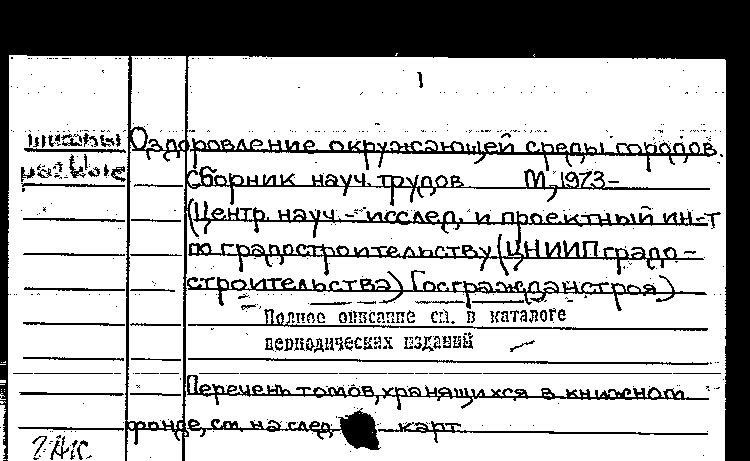 1
шифры Оздоровление окружающей среды городов.
Сборник науч. трудов М, 1973-
(Центр. науч.-исслед. и проектный ин-т
по градостроительству (ЦНИИПградо-
строительства) Госгражданстроя)
Полное описание см. в каталоге
периодических изданий
Перечень томов, хранящихся в книжном
фонде, см. на след. карт.